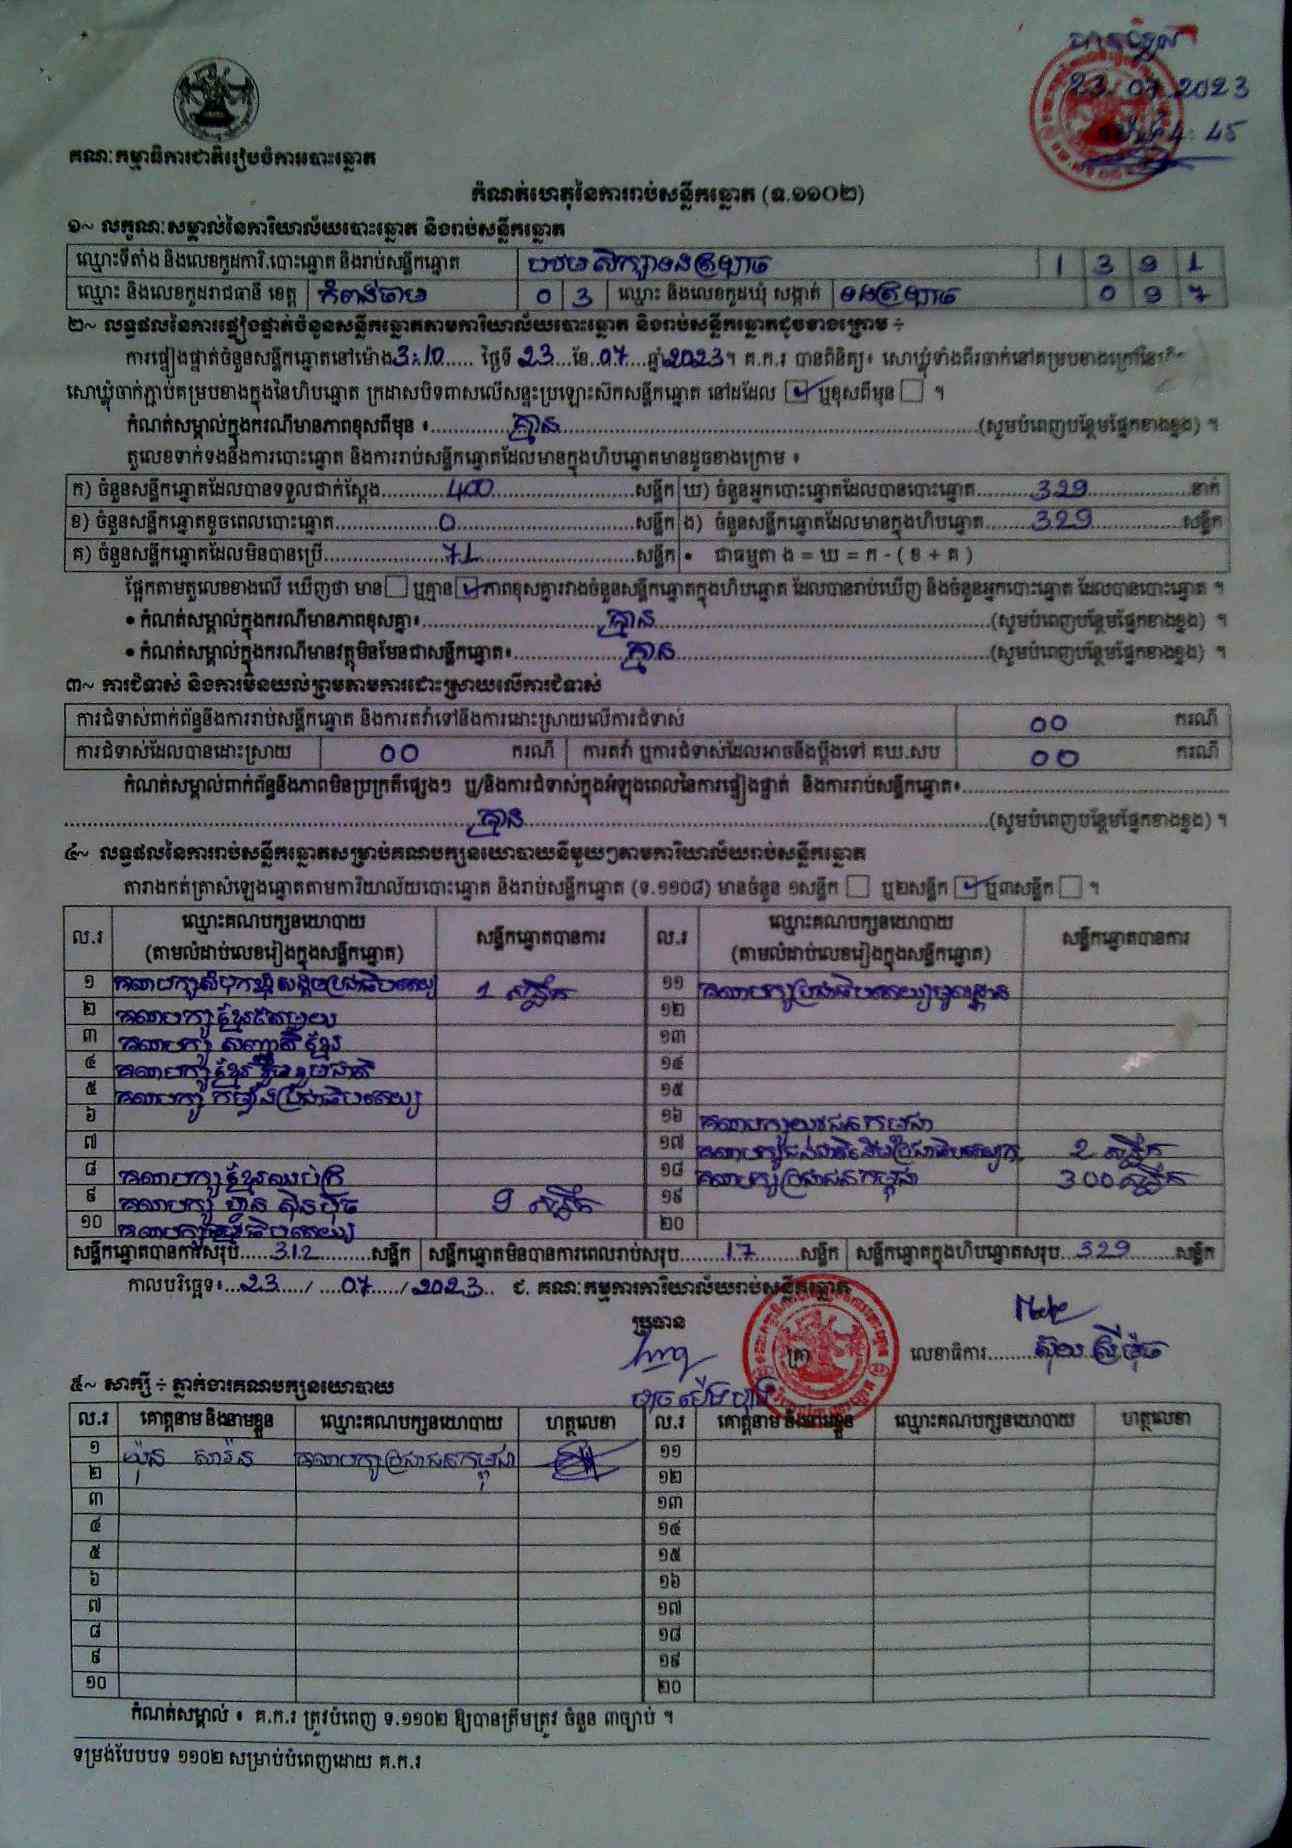 23.07.2023
4:45
គណៈកម្មាធិការជាតិរៀបចំការបោះឆ្នោត
កំណត់ហេតុនៃការរាប់សន្លឹកឆ្នោត (ទ.១១០២)
១~ លក្ខណៈសម្គាល់នៃការិយាល័យបោះឆ្នោត និងរាប់សន្លឹកឆ្នោត
ឈ្មោះទីតាំង និងលេខកូដការិ.បោះឆ្នោត និងរាប់សន្លឹកឆ្នោត 1 3 9 1
ឈ្មោះ និងលេខកូដរាជធានី ខេត្ត កំពង់ចាម 0 3 ឈ្មោះ និងលេខកូដឃុំ សង្កាត់ 0 9 7
២~ លទ្ធផលនៃការផ្ទៀងផ្ទាត់ចំនួនសន្លឹកឆ្នោតតាមការិយាល័យបោះឆ្នោត និងរាប់សន្លឹកឆ្នោតដូចខាងក្រោម ÷
ការផ្ទៀងផ្ទាត់ចំនួនសន្លឹកឆ្នោតនៅម៉ោង 3:10 ថ្ងៃទី 23 ខែ 07 ឆ្នាំ 2023។ គ.ក.រ បានពិនិត្យ៖ សោឃ្លុំទាំងពីរចាក់នៅគម្របខាងក្រៅនៃហិប
សោឃ្លុំចាក់ភ្ជាប់គម្របខាងក្នុងនៃហិបឆ្នោត ក្រដាសបិទពាសលើសន្ទះប្រឡោះស៊កសន្លឹកឆ្នោត នៅដដែល ☑ ឬខុសពីមុន ☐ ។
កំណត់សម្គាល់ក្នុងករណីមានភាពខុសពីមុន ៖ គ្មាន (សូមបំពេញបន្ថែមផ្នែកខាងខ្នង) ។
តួលេខទាក់ទងនឹងការបោះឆ្នោត និងការរាប់សន្លឹកឆ្នោតដែលមានក្នុងហិបឆ្នោតមានដូចខាងក្រោម ៖
ក) ចំនួនសន្លឹកឆ្នោតដែលបានទទួលជាក់ស្តែង 400 សន្លឹក ឃ) ចំនួនអ្នកបោះឆ្នោតដែលបានបោះឆ្នោត 329 នាក់
ខ) ចំនួនសន្លឹកឆ្នោតខូចពេលបោះឆ្នោត 0 សន្លឹក ង) ចំនួនសន្លឹកឆ្នោតដែលមានក្នុងហិបឆ្នោត 329 សន្លឹក
គ) ចំនួនសន្លឹកឆ្នោតដែលមិនបានប្រើ 71 សន្លឹក • ជាធម្មតា ង = ឃ = ក - ( ខ + គ )
ផ្អែកតាមតួលេខខាងលើ ឃើញថា មាន ☐ ឬគ្មាន ☑ ភាពខុសគ្នារវាងចំនួនសន្លឹកឆ្នោតក្នុងហិបឆ្នោត ដែលបានរាប់ឃើញ និងចំនួនអ្នកបោះឆ្នោត ដែលបានបោះឆ្នោត ។
• កំណត់សម្គាល់ក្នុងករណីមានភាពខុសគ្នា៖ គ្មាន (សូមបំពេញបន្ថែមផ្នែកខាងខ្នង) ។
• កំណត់សម្គាល់ក្នុងករណីមានវត្ថុមិនមែនជាសន្លឹកឆ្នោត៖ គ្មាន (សូមបំពេញបន្ថែមផ្នែកខាងខ្នង) ។
៣~ ការជំទាស់ និងការមិនយល់ព្រមតាមការដោះស្រាយលើការជំទាស់
ការជំទាស់ពាក់ព័ន្ធនឹងការរាប់សន្លឹកឆ្នោត និងការតវ៉ាទៅនឹងការដោះស្រាយលើការជំទាស់ 00 ករណី
ការជំទាស់ដែលបានដោះស្រាយ 00 ករណី ការតវ៉ា ឬការជំទាស់ដែលអាចនឹងប្តឹងទៅ គឃ.សប 00 ករណី
កំណត់សម្គាល់ពាក់ព័ន្ធនឹងភាពមិនប្រក្រតីផ្សេងៗ ឬ/និងការជំទាស់ក្នុងអំឡុងពេលនៃការផ្ទៀងផ្ទាត់ និងការរាប់សន្លឹកឆ្នោត៖
គ្មាន (សូមបំពេញបន្ថែមផ្នែកខាងខ្នង) ។
៤~ លទ្ធផលនៃការរាប់សន្លឹកឆ្នោតសម្រាប់គណបក្សនយោបាយនីមួយៗតាមការិយាល័យរាប់សន្លឹកឆ្នោត
តារាងកត់ត្រាសំឡេងឆ្នោតតាមការិយាល័យបោះឆ្នោត និងរាប់សន្លឹកឆ្នោត (ទ.១១០៨) មានចំនួន ១សន្លឹក ☐ ឬ២សន្លឹក ☑ ឬ៣សន្លឹក ☐ ។
ល.រ ឈ្មោះគណបក្សនយោបាយ (តាមលំដាប់លេខរៀងក្នុងសន្លឹកឆ្នោត) សន្លឹកឆ្នោតបានការ ល.រ ឈ្មោះគណបក្សនយោបាយ (តាមលំដាប់លេខរៀងក្នុងសន្លឹកឆ្នោត) សន្លឹកឆ្នោតបានការ
១ គណបក្សសំបុកឃ្មុំសង្គមប្រជាធិបតេយ្យ 1 សន្លឹក ១១ គណបក្សប្រជាធិបតេយ្យមូលដ្ឋាន
២ គណបក្សខ្មែរតែមួយ ១២
៣ គណបក្ស សញ្ជាតិខ្មែរ ១៣
៤ គណបក្សខ្មែររួបរួមជាតិ ១៤
៥ គណបក្ស កម្លាំងប្រជាធិបតេយ្យ ១៥
៦ ១៦ គណបក្សយុវជនកម្ពុជា
៧ ១៧ 2 សន្លឹក
៨ គណបក្សខ្មែរឈប់ក្រ ១៨ គណបក្សប្រជាជនកម្ពុជា 300 សន្លឹក
៩ គណបក្ស ហ្វ៊ុនស៊ិនប៉ិច 9 សន្លឹក ១៩
១០ គណបក្សធម្មាធិបតេយ្យ ២០
សន្លឹកឆ្នោតបានការសរុប 312 សន្លឹក សន្លឹកឆ្នោតមិនបានការពេលរាប់សរុប 17 សន្លឹក សន្លឹកឆ្នោតក្នុងហិបឆ្នោតសរុប 329 សន្លឹក
កាលបរិច្ឆេទ៖ 23 / 07 / 2023 ៩. គណៈកម្មការការិយាល័យរាប់សន្លឹកឆ្នោត
ប្រធាន
ត្រា លេខាធិការ
៥~ សាក្សី ÷ ភ្នាក់ងារគណបក្សនយោបាយ
ល.រ គោត្តនាម និងនាមខ្លួន ឈ្មោះគណបក្សនយោបាយ ហត្ថលេខា ល.រ គោត្តនាម និងនាមខ្លួន ឈ្មោះគណបក្សនយោបាយ ហត្ថលេខា
១ គណបក្សប្រជាជនកម្ពុជា ១១
២ ១២
៣ ១៣
៤ ១៤
៥ ១៥
៦ ១៦
៧ ១៧
៨ ១៨
៩ ១៩
១០ ២០
កំណត់សម្គាល់ ៖ គ.ក.រ ត្រូវបំពេញ ទ.១១០២ ឱ្យបានត្រឹមត្រូវ ចំនួន ៣ច្បាប់ ។
ទម្រង់បែបបទ ១១០២ សម្រាប់បំពេញដោយ គ.ក.រ